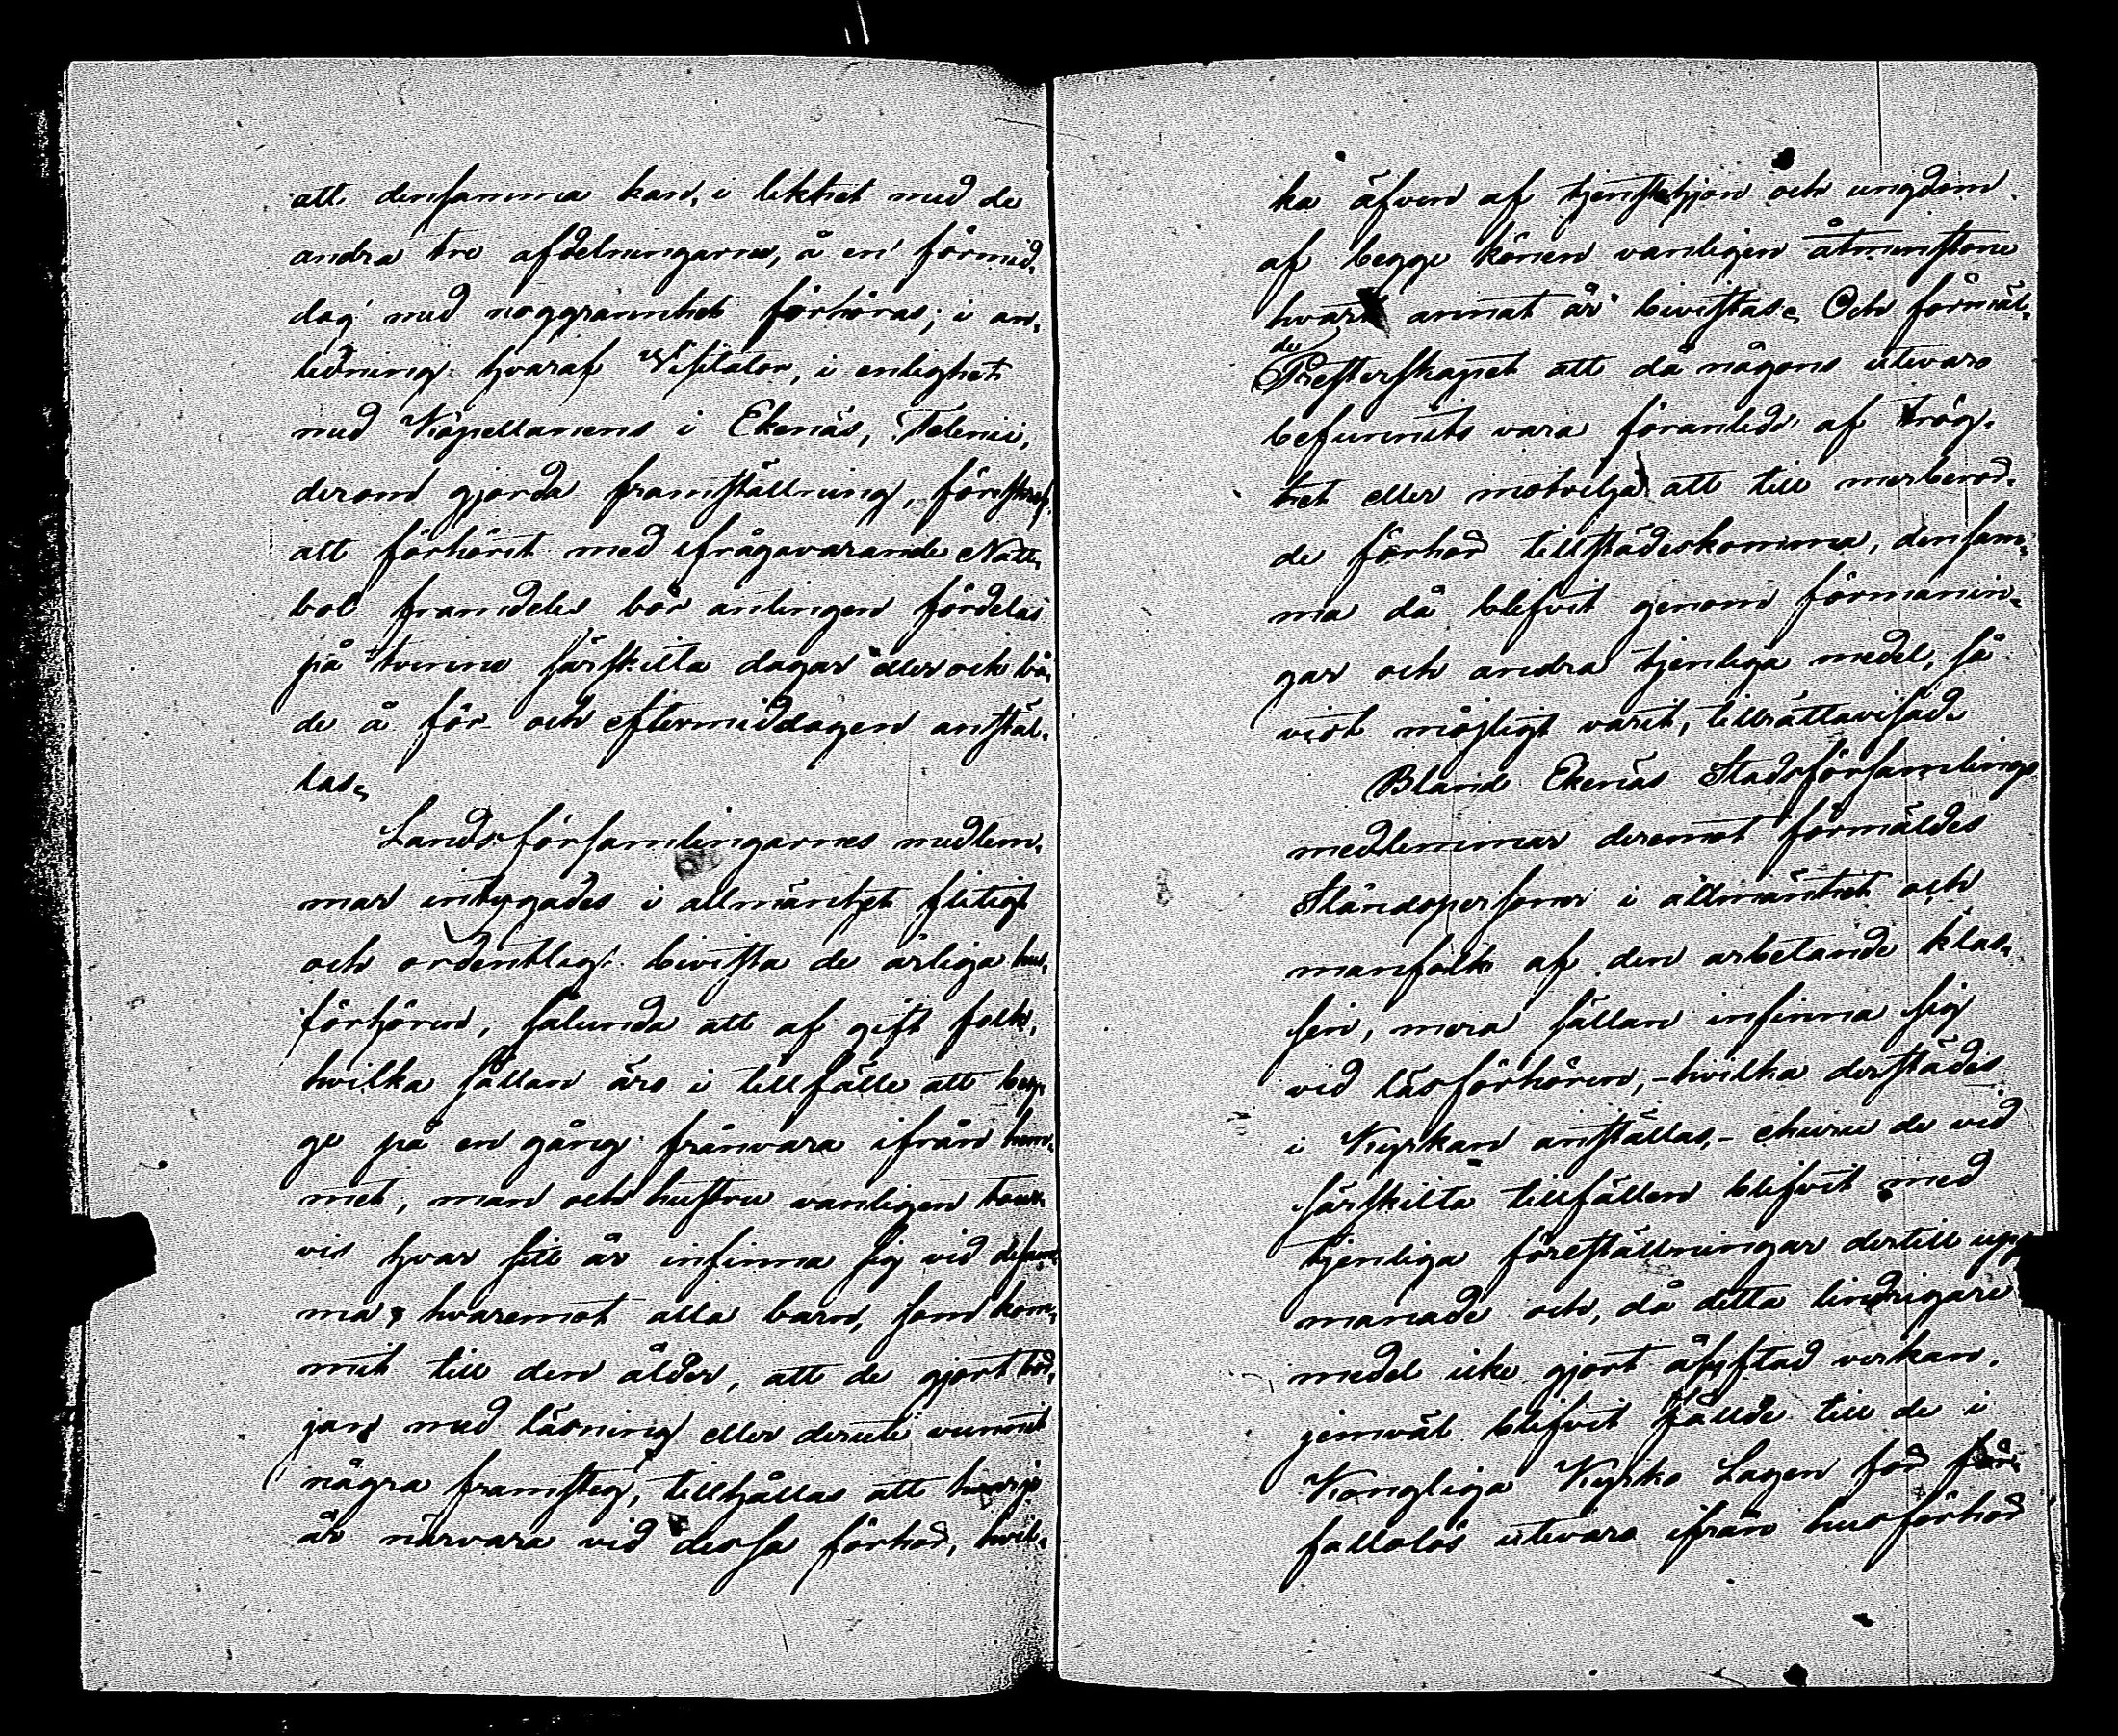 att densamma kan, i likhet med de
andra tre afdelningarne, å en förmid-
dag med noggrannhet förhöras; i an-
ledning hvaraf Visitator, i enlighet
med Kapellanens i Ekenäs, Telenii,
derom gjorda framställning, föreskref
att förhöret med ifrågavarande Natte-
bol framdeles bör antingen fördelas
på tvenne särskilta dagar eller och bå-
de å för och eftermiddagen anstäl-
las.
Lands-församlingarnes medlem-
mar intygades i allmänhet flitigt
och ordentligt bevista de årliga hus-
förhören, sålunda att af gift folk,
hvilka sällan äro i tillfälle att beg-
ge på en gång frånvara ifrån hem-
met, man och hustru vanligen tour-
vis hvar sitt år infinna sig vid desam-
ma; hvaremot alla barn, som kom-
mit till den ålder, att de gjort bör-
jan med läsning eller deruti vunnit
några framsteg, tillhållas att hvarje
år närvara vid dessa förhör, hvil-
ka äfven af tjenstehjon och ungdom
af begge könen vanligen åtminstone
hvart annat år bevistas. Och förmäl-
de
Presterskapet att då någons utevaro
befunnits vara föranledd af trög-
het eller motvilja att till merberör-
de förhör tillstädeskomma, densam-
ma då blifvit genom förmanin-
gar och andra tjenliga medel, så
vidt möjligt varit, tillrättavisad.
Bland Ekenäs Stadsförsamlings
medlemmar deremot förmäldes
Ståndspersoner i allmänhet och
manfolk af den arbetande klas-
sen, mera sällan infinna sig
vid läsförhören, - hvilka derstädes
i Kyrkan anställas, - ehuru de vid
särskilta tillfällen blifvit med
tjenliga föreställningar dertill upp-
manade och, då detta lindrigare
medel icke gjort åsyftad verkan,
jemväl blifvit fällde till de i
Kongliga Kyrko Lagen för för-
fallolös utevaro ifrån husförhör